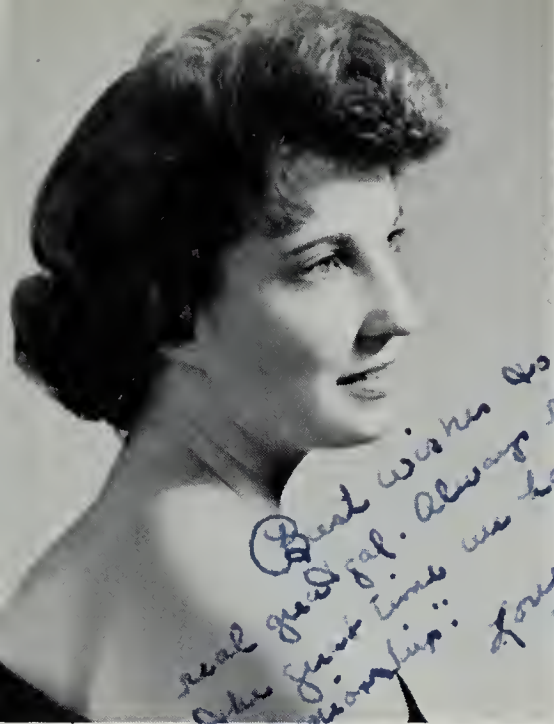 Best wishes to
real great gal. Always
the great time we
Love